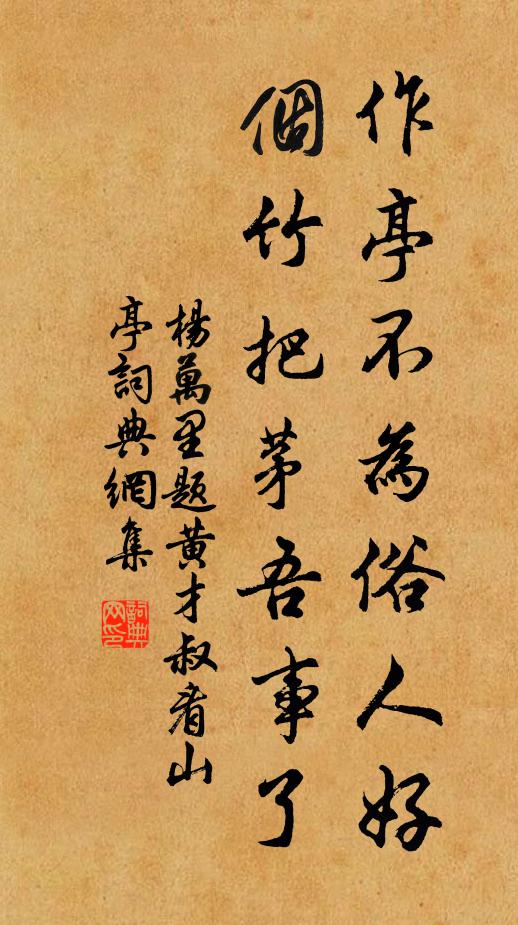 作亭不為俗人好
個竹把茅吾事了
楊萬里題黄才叔看山
亭詞典網集
詞典
网印